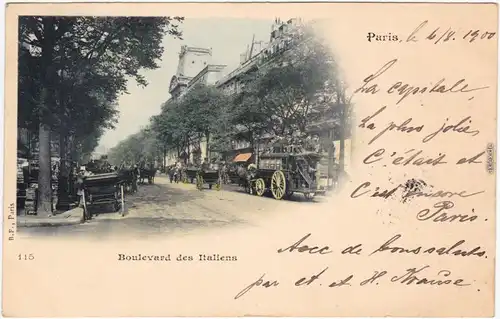 Paris, le 6/X 1900
La capitale
La plus jolie
C'était et
C'est encore
Paris.
Avec de bons saluts
par et A. H. Krause
115
Boulevard des Italiens
B.F., Paris